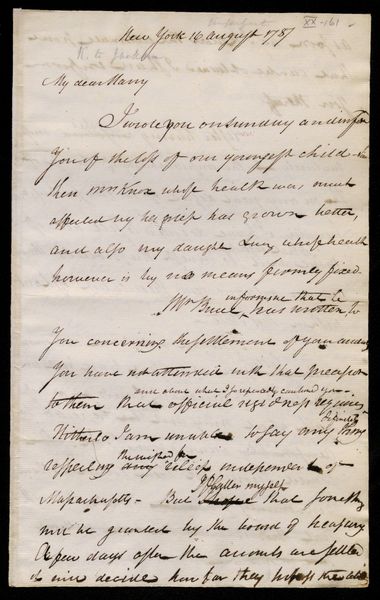 XX-161
New York 16 August 1787
K. to Jackson
My dear Harry
I wrote you on Sunday and inform
You of the loss of our youngest child - since
then Mrs Knox whose health was much
affected by her grief has grown better,
and also my daughr Lucy whose health
however is by no means firmly fixed.
informs me that he
Mr Burel has written to
You concerning the settlement of your accounts
You have not attended with that precision
and about which I repeatedly cautioned you
to them that official rigidness requires
definitive
Hitherto I am unable to say any thing
the wished for
respecting any relief independent of
I flatter myself
Massachusetts - But I hope that something
will be granted by the board of treasury
A few days after the accounts are settled
will decide how far they possess the